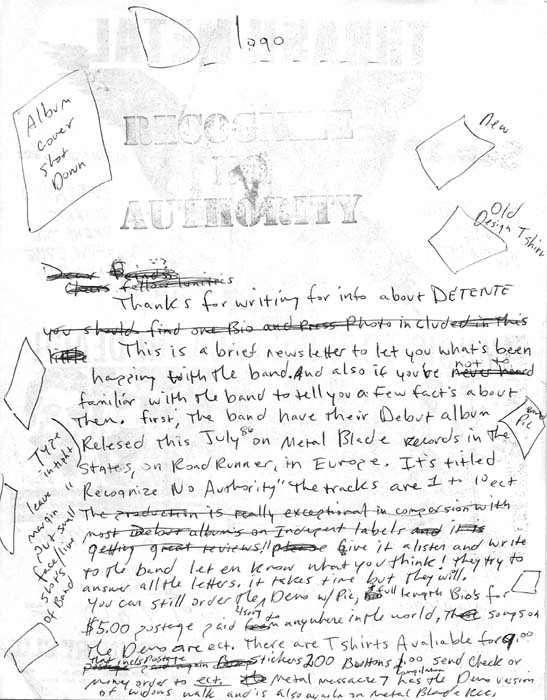 D logo
Album
cover
shot
Down
New
Old
Design T shirt
Dear Friends
fellow lunitics
Thanks for writing for info about DETENTE
you should find one Bio and Press Photo included in this
This is a brief newsletter to let you what's been
happing with the band. And also if you're not to
never heard
familiar with the band to tell you a few fact's about
Them. first, The band have their Debut album
Relesed this July 86 on Metal Blade Records in The
States, on RoadRunner, in Europe. It's titled
Recognize No Authority" The tracks are 1 to 10 ect
The production is really exceptional in comperison with
most Debut album's on Indepent labels and it is
getting great reviews!! please Give it a listen and write
to the band let em know what you think! they try to
answer all the letters. it takes time but They will.
You can still order the 4song Demo w/Pic, full length Bio's for
$5.00 postage paid to anywhere in the world, The songs on
the Demo are ect. There are T shirts Avaliable for 9.00
that incls Postage again stickers 2.00 Buttons 1.00 send check or
money order to ect. The metal massacre 7 compilation has the Demo version
of widows walk and is also available on metal Blade Rec.
and
Pic
Type
in tight
leave 11
margin
put small
face/live
shots
of Band
THRASH METAL
RECOGNIZE
NO
AUTHORITY